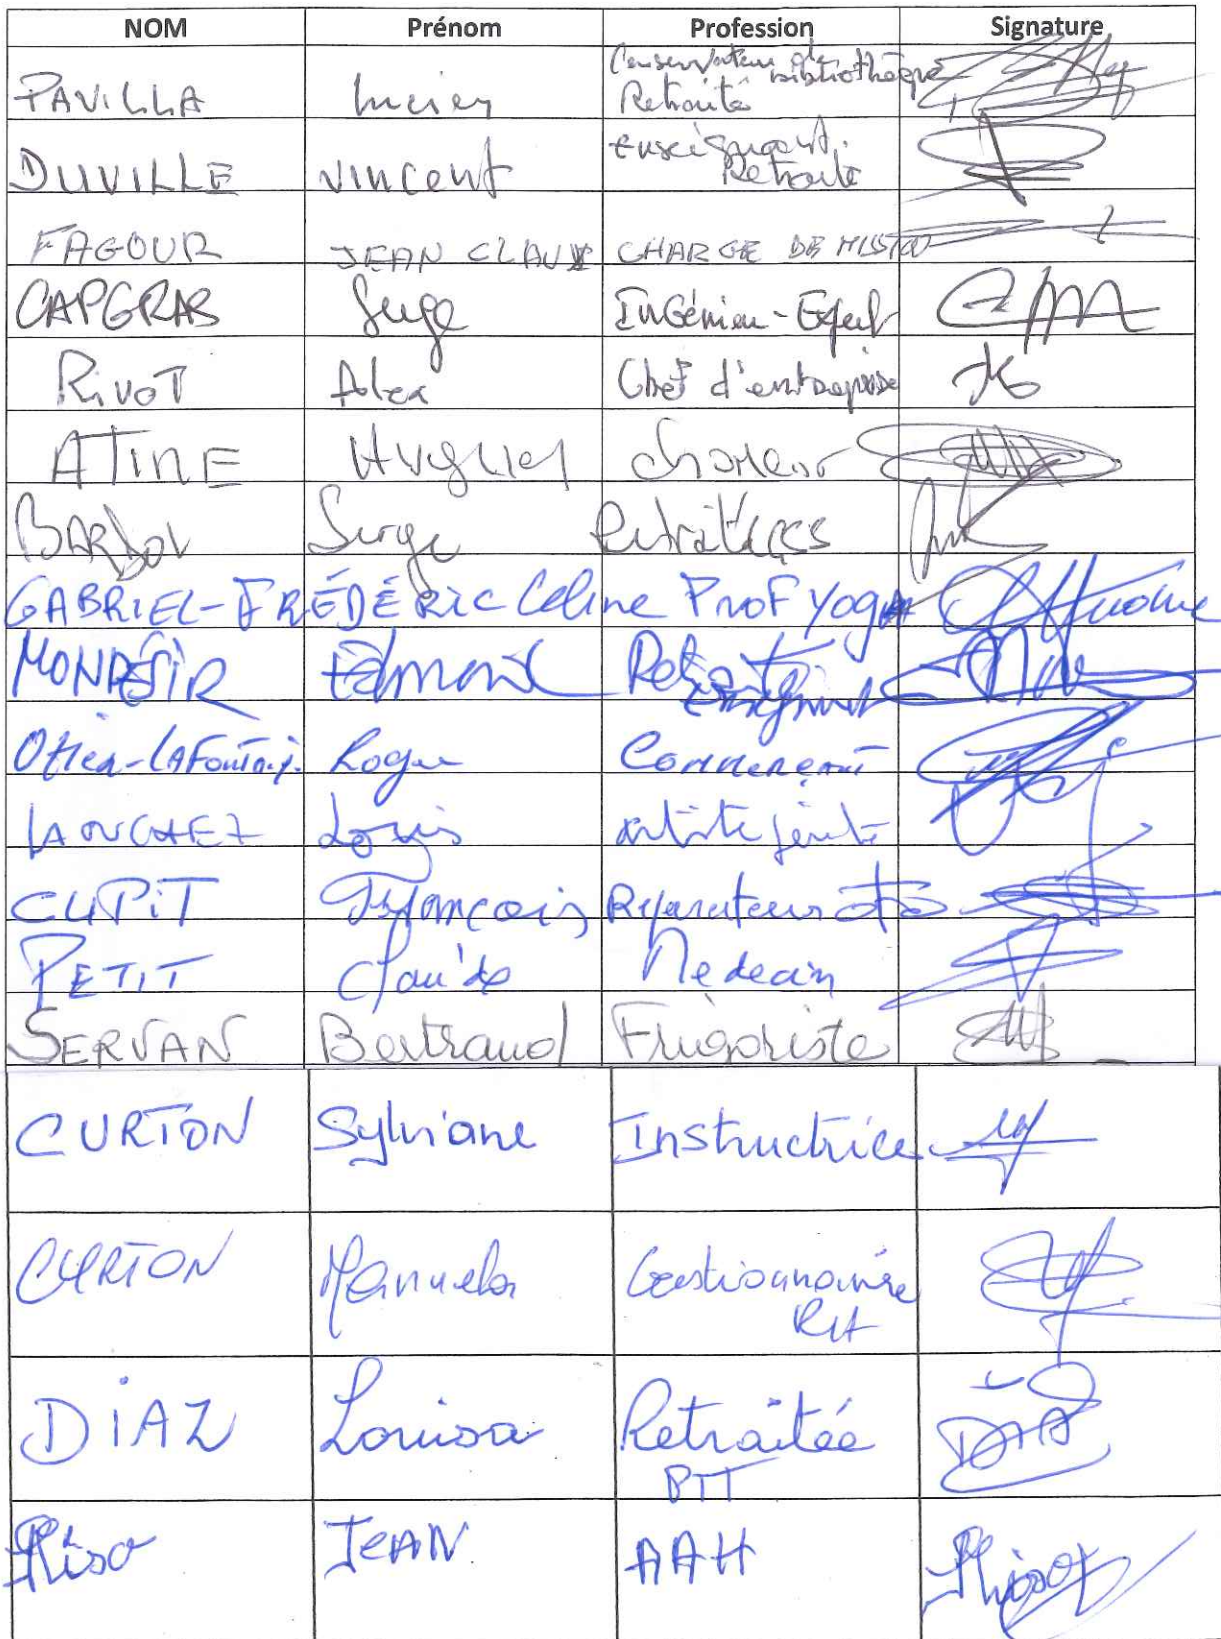 NOM Prénom Profession Signature
PAVILLA Lucien Conservateur de bibliothèque
Retraité
DUVILLE Vincent Enseignant
Retraité
FAGOUR JEAN CLAUDE CHARGE DE MISSION
CAPGRAS Serge Ingénieur-Expert
RivoT Alex Chef d'entreprise
ATINE Hugues
BARDOL Serge
GABRIEL-FRÉDÉRIC Céline Prof Yoga
MONDÉSIR Edmond Retraité
Enseignant
Commerçant
Louis
CUPIT François Réparateur
PETIT Claude Médecin
SERVAN Bertrand Frigoriste
CURTON Sylviane Instructrice
CURTON Manuela Gestionnaire
RH
DIAZ Louisa Retraitée
PTT
JEAN AAH